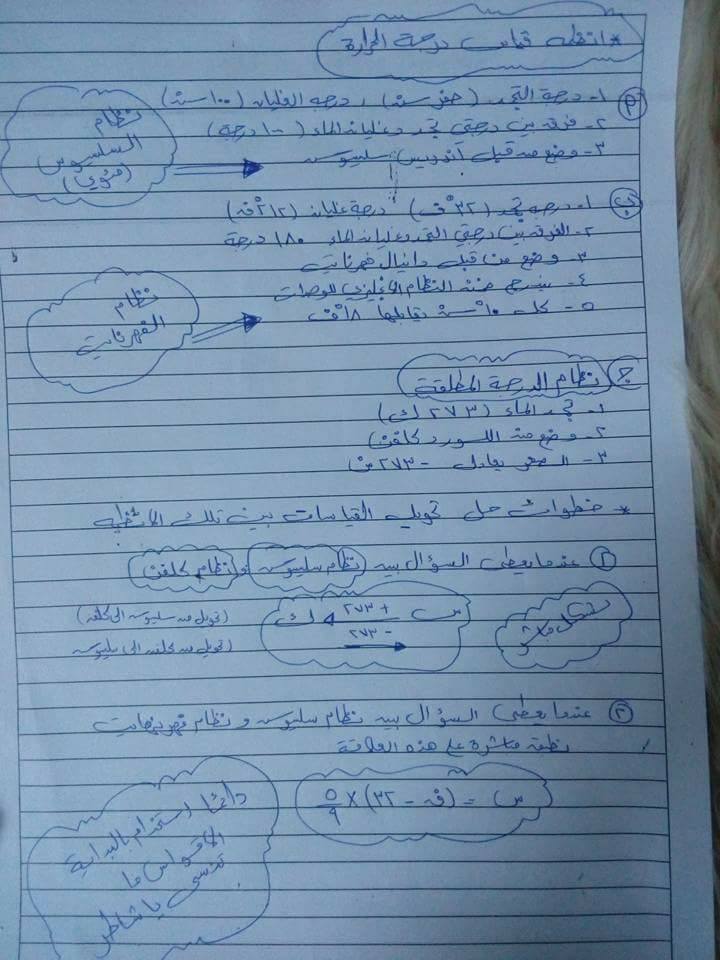 * انظمة قياس درجة الحرارة
أ
١- درجة التجمد (صفر سْ) ، درجة الغليان (١٠٠ سْ)
٢- فرق بين درجتي تجمد وغليان الماء (١٠٠ درجة)
٣- وضع من قبل أندريس سليوس
نظام
السلسيوس
(مئوي)
ب
١- درجة تجمد (٣٢ْ ف) درجة غليان (٢١٢ْ فـ)
٢- الفرق بين درجتي التجمد وغليان الماء ١٨٠ درجة
٣- وضع من قبل دانيال فهرنايت
٤- ضمن النظام الانجليزي للوحدات
٥- كل ١٠ْ سْ يقابلها ١٨ْ ف
نظام
الفهرنايت
ج نظام الدرجة المطلقة
١- تجمد الماء (٢٧٣ ك)
٢- وضع من اللورد كلفن
٣- الصفر يعادل -٢٧٣ سْ
* خطوات حل تحويل القياسات بين تلك الانظمة
١ عندما يعطى السؤال بين (نظام سليوس) و(نظام كلفن)
بشكل مباشر
س +٢٧٣ ك
-٢٧٣
(تحويل من سليوس الى كلفن)
(تحويل من كلفن الى سليوس)
٢ عندما يعطى السؤال بين نظام سليوس و نظام فهرنهايت
نطبق مباشرة على هذه العلاقة
س = (فـ - ٣٢) × ٥/٩
دائما استخدام بالبداية
الاقواس ما
تنسى يا شاطر